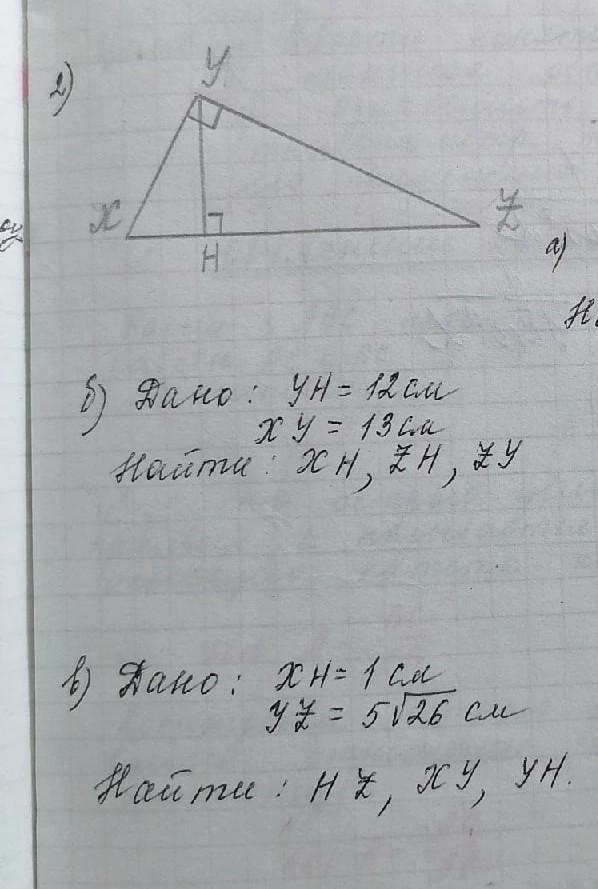 2)
У
X
Z
H
а)
б) Дано: YH = 12 см
XY = 13 см
Найти: XH, ZH, ZY
в) Дано: XH = 1 см
YZ = 5√26 см
Найти: HZ, XY, YH.